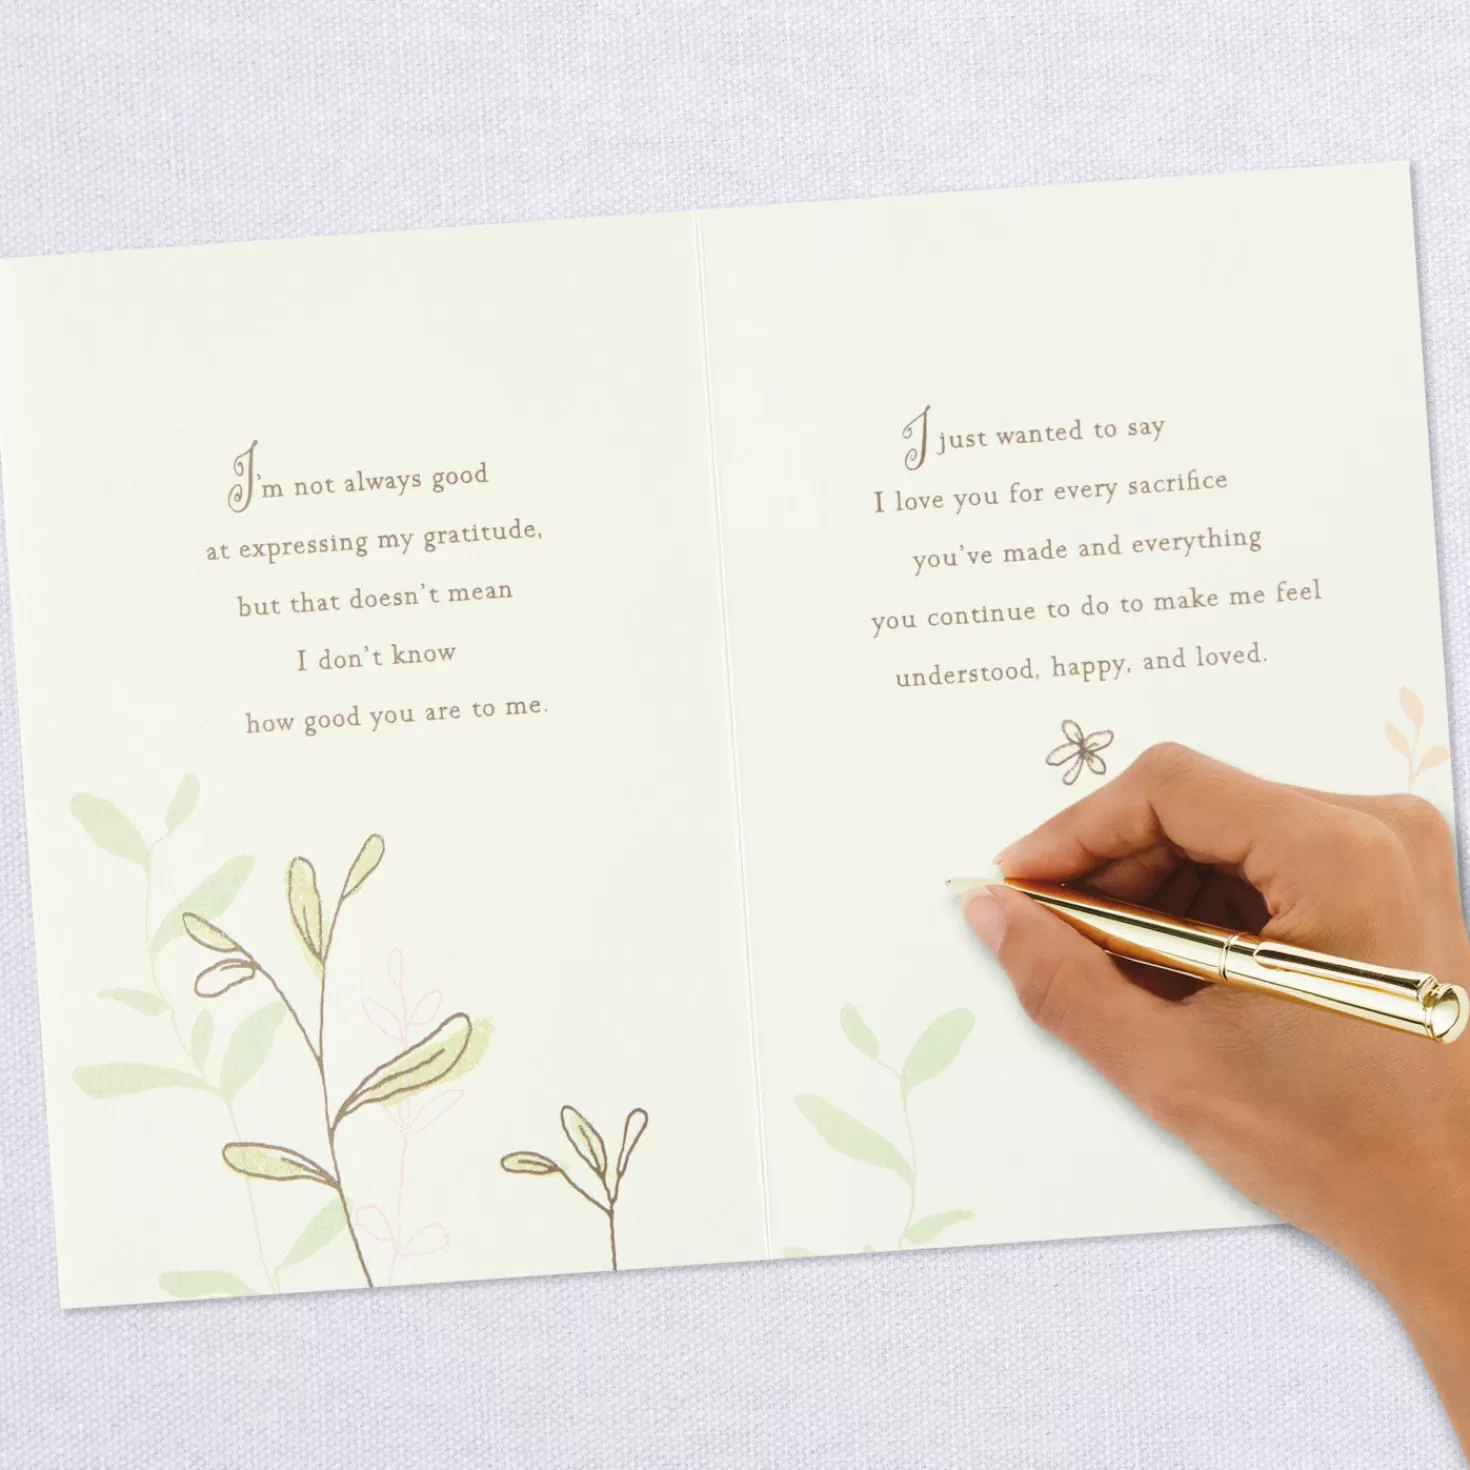 I'm not always good
at expressing my gratitude,
but that doesn't mean
I don't know
how good you are to me.
I just wanted to say
I love you for every sacrifice
you've made and everything
you continue to do to make me feel
understood, happy, and loved.